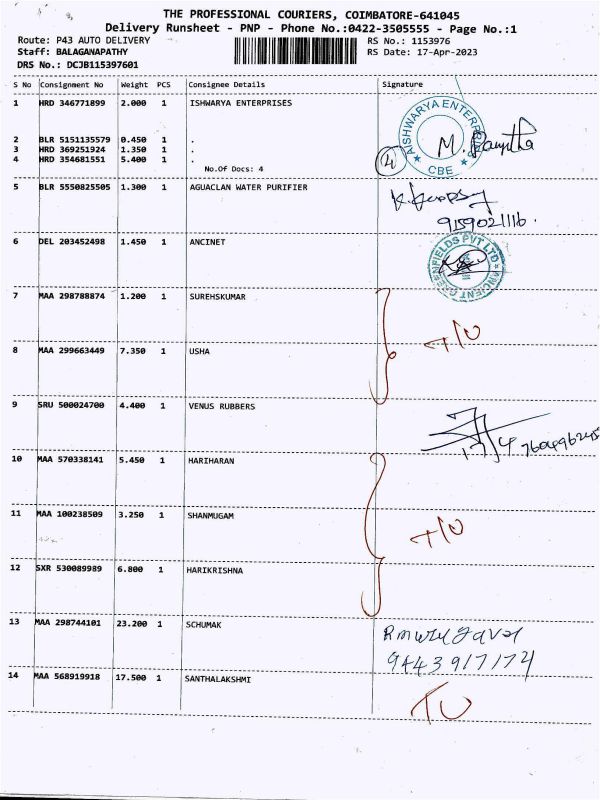 THE PROFESSIONAL COURIERS, COIMBATORE-641045
Delivery Runsheet - PNP - Phone No.:0422-3505555 - Page No.:1
Route: P43 AUTO DELIVERY RS No.: 1153976
Staff: BALAGANAPATHY RS Date: 17-Apr-2023
DRS No.: DCJB115397601
S No Consignment No Weight PCS Consignee Details Signature
1 HRD 346771899 2.000 1 ISHWARYA ENTERPRISES
AISHWARYA ENTERPRISES
CBE
2 BLR 5151135579 0.450 1 .
3 HRD 369251924 1.350 1 .
4 HRD 354681551 5.400 1 .
No.Of Docs: 4
4
5 BLR 5550825505 1.300 1 AGUACLAN WATER PURIFIER
9159021116.
6 DEL 203452498 1.450 1 ANCINET
ANCIENT GREENFIELDS PVT LTD
7 MAA 298788874 1.200 1 SUREHSKUMAR
T/U
8 MAA 299663449 7.350 1 USHA
9 SRU 500024700 4.400 1 VENUS RUBBERS
17/4
10 MAA 570338141 5.450 1 HARIHARAN
11 MAA 100238509 3.250 1 SHANMUGAM
T/U
12 SXR 530089989 6.800 1 HARIKRISHNA
13 MAA 298744101 23.200 1 SCHUMAK
9443917174
14 MAA 568919918 17.500 1 SANTHALAKSHMI
TU